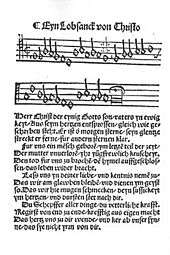 ¶ Eyn Lobsanck von Christo
Herr Christ der eynig Gotts son / vaters yn ewig
keyt / Aus seym hertzen entsprossen / gleich wie ge
schrieben steht. Er ist d' morgen sterne / seyn glentze
streckt er ferne / fur andern sternen klar.
Fur uns ein mensch geborē / ym letzē teil der zeyt /
Der mutter unverlorē / yhr yungfrewlich keuscheyt /
Den tod fur uns zu brochē / dē hymel auffgeschlos
sen / das leben wider bracht.
Las uns yn deiner liebe / und kentnis nemē zu /
Das wir am glawben bleibē / und dienen ym geyst
so / Das wir hie mugen schmecken / deyn sussickeyt
ym hertzen / und dursten stet nach dir.
Du Schepffer aller dinge / du veterliche krafft /
Regirst von end zu ende / krefftig aus eigen macht
Das hertz uns zu dir wende / und ker ab unser syn
ne / das sye nicht yrrn von dir.